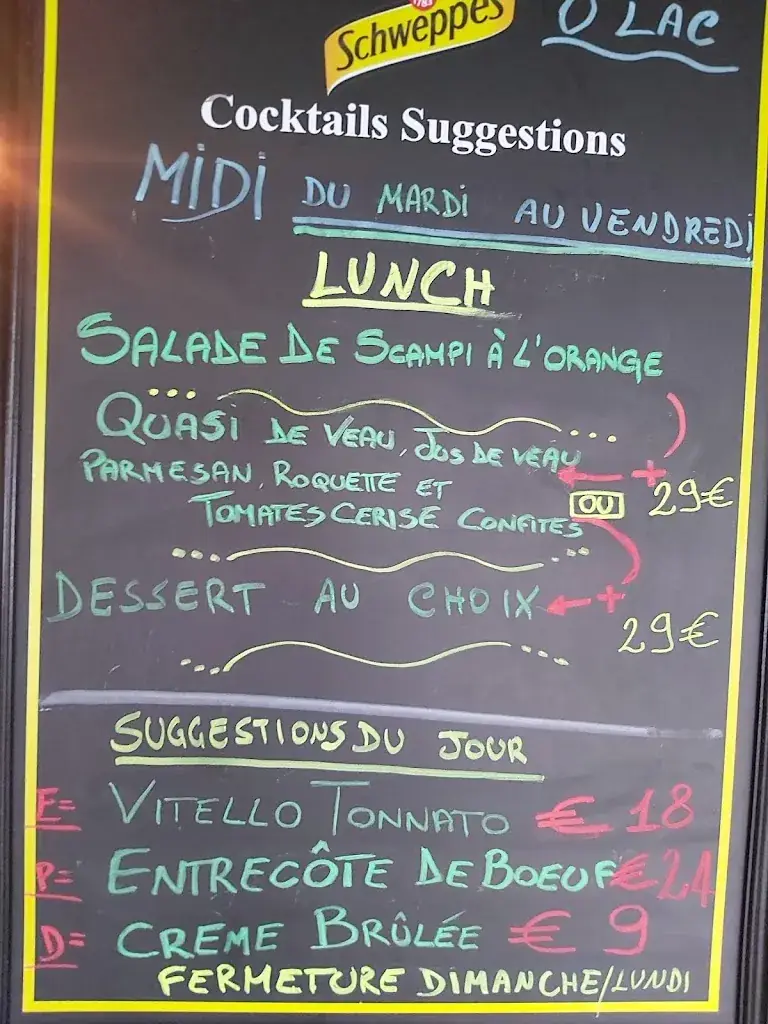 1783
Schweppes
O LAC
Cocktails Suggestions
MIDI DU MARDI AU VENDREDI
LUNCH
SALADE DE SCAMPI À L'ORANGE
QUASI DE VEAU, JUS DE VEAU
PARMESAN, ROQUETTE ET
TOMATES CERISE CONFITES
+
OU 29€
DESSERT AU CHOIX +
29€
SUGGESTIONS DU JOUR
E= VITELLO TONNATO € 18
P= ENTRECÔTE DE BOEUF € 24
D= CREME BRÛLÉE € 9
FERMETURE DIMANCHE/LUNDI